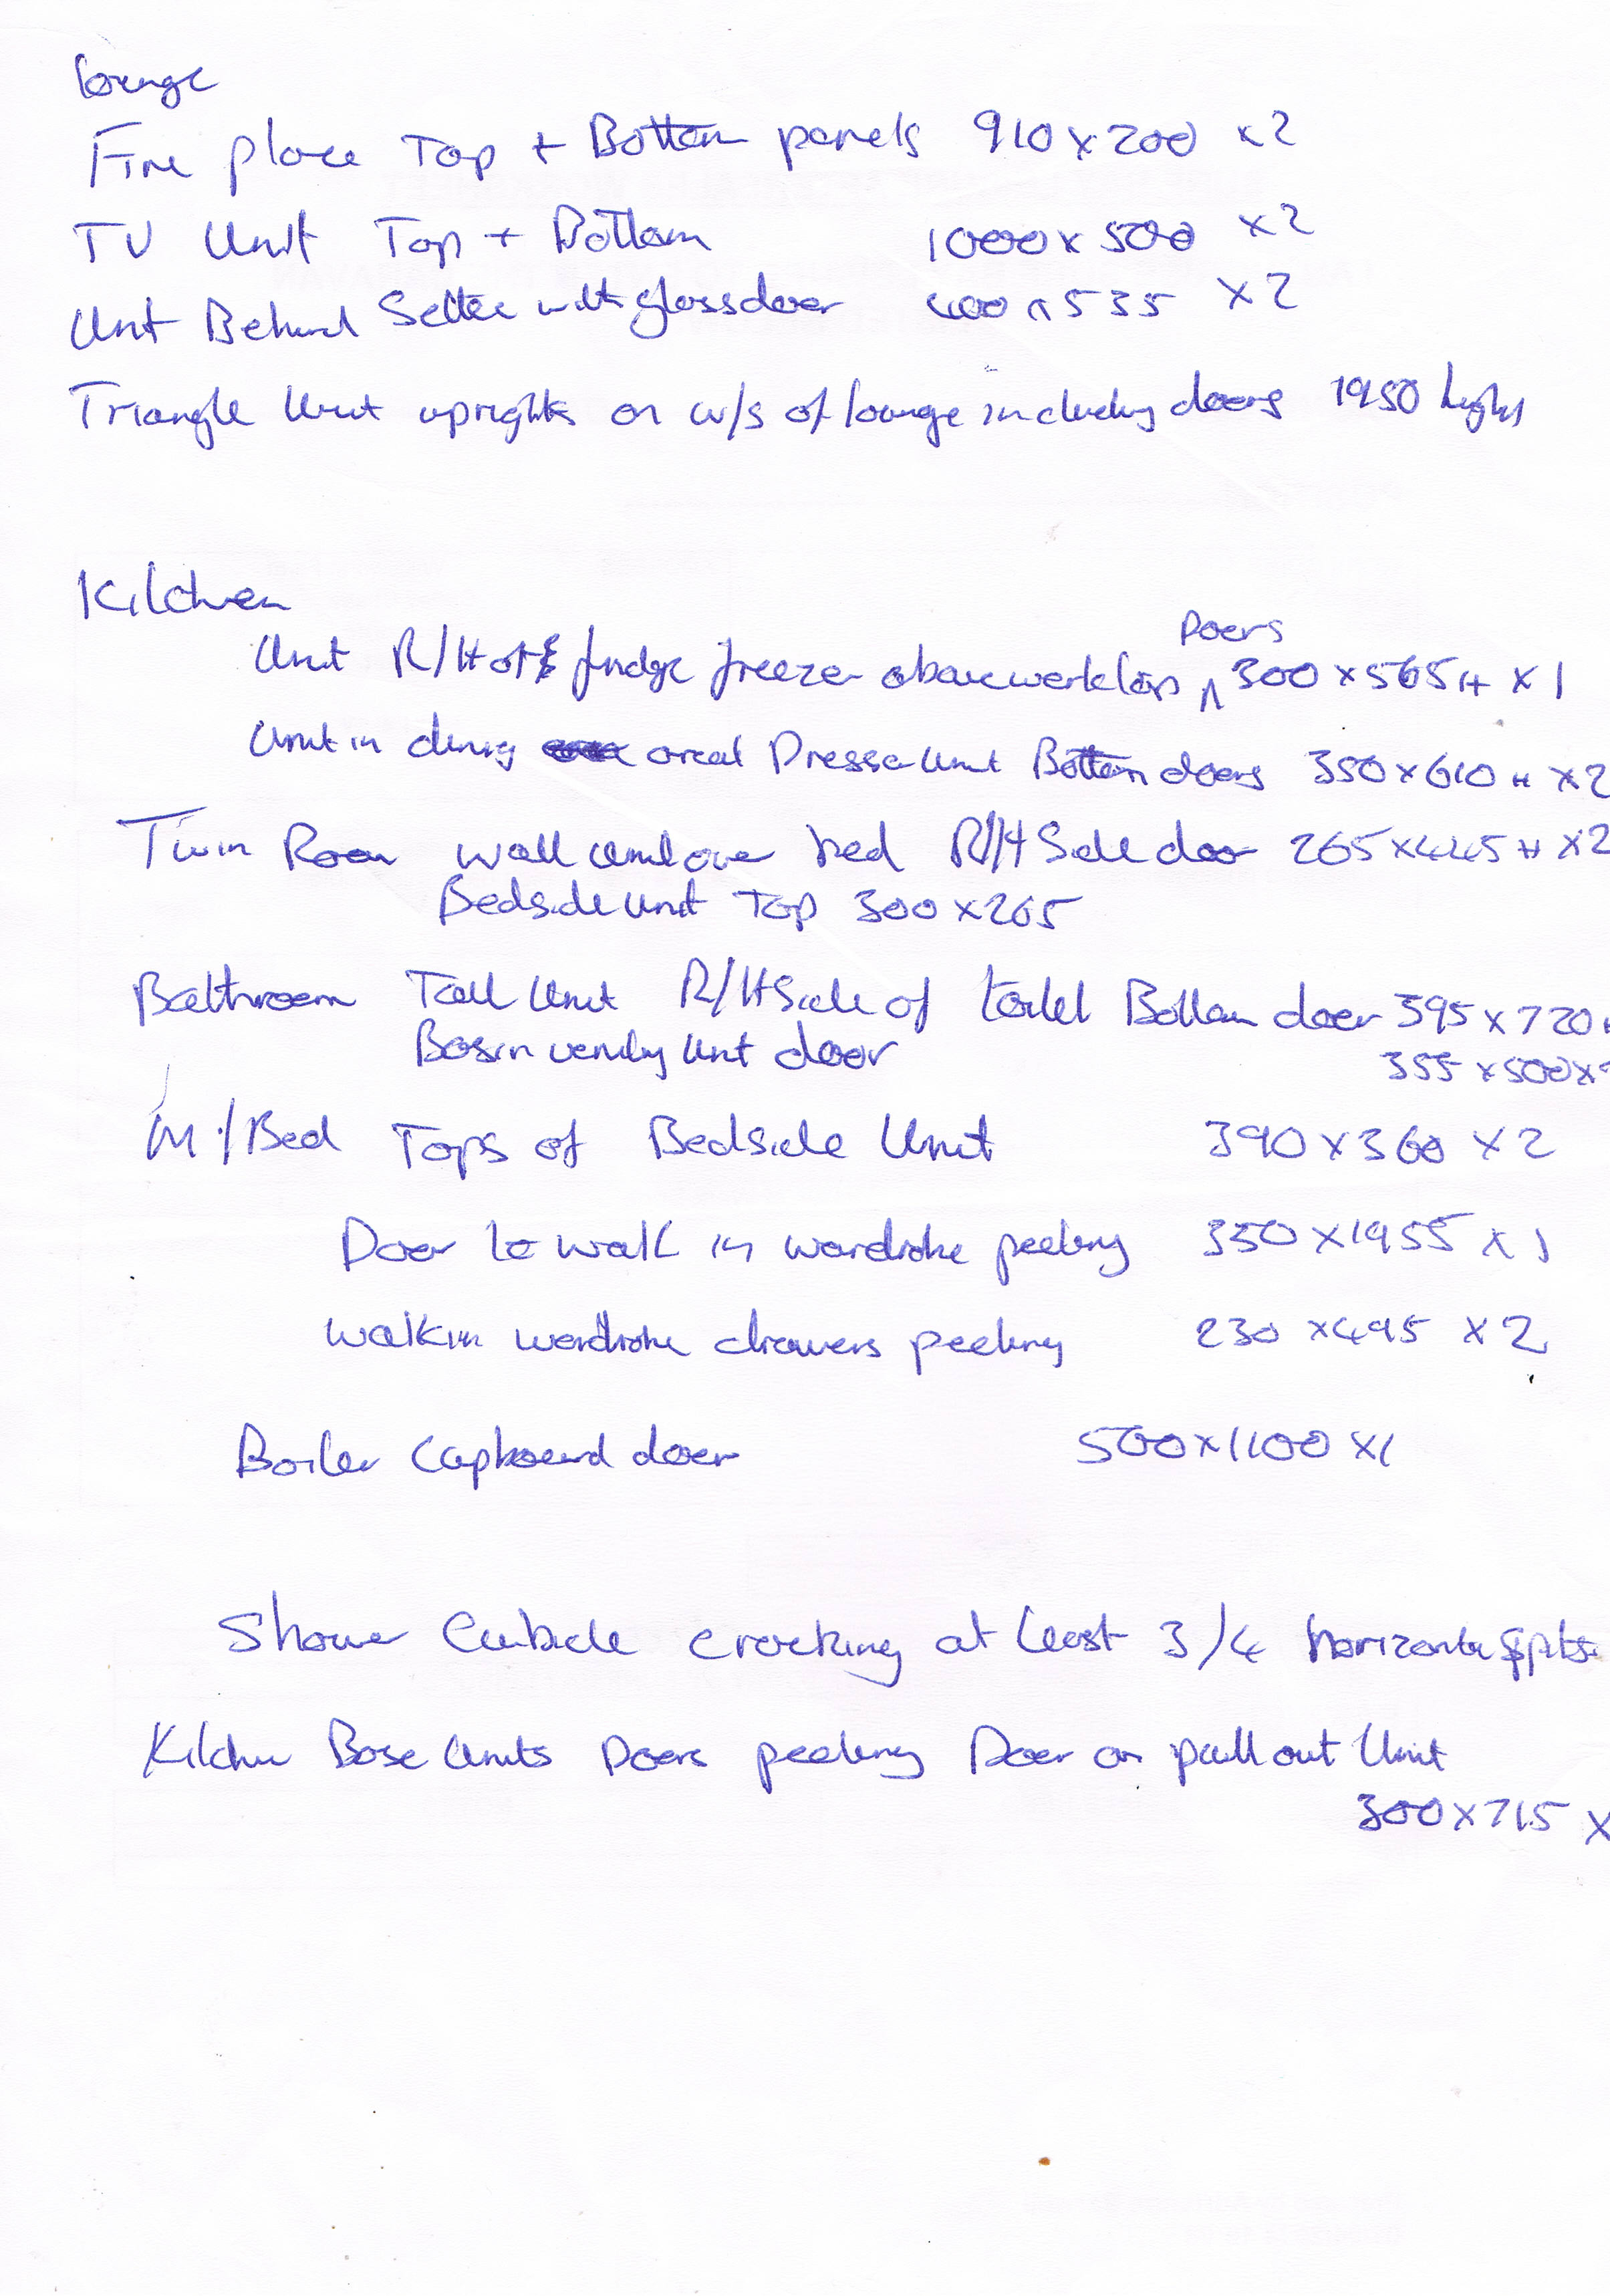 Lounge
Fire place Top + Bottom panels 910 x 200 x2
TV Unit Top + Bottom 1000 x 500 x2
Unit Behind Settee with glass door 400 x 535 x2
Triangle Unit uprights on w/s of lounge including doors 1950 high
Kitchen
Doors
Unit R/H of fridge freezer above worktop ^ 300 x 565 H x 1
Unit in dining area Dresser Unit Bottom doors 350 x 610 H x2
Twin Room wall unit over bed R/H Side door 265 x 445 H x2
Bedside Unit Top 300 x 265
Bathroom Tall Unit R/H Side of toilet Bottom door 395 x 720
Basin vanity Unit door
355 x 500 x
M/Bed Tops of Bedside Unit 390 x 360 x 2
Door to walk in wardrobe peeling 350 x 1955 x 1
walkin wardrobe drawers peeling 230 x 495 x 2
Boiler Cupboard door 500 x 1100 x1
Shower Cubicle cracking at least 3/4 horizontal splits
Kitchen Base Units Doors peeling Door on pull out Unit
300 x 715 x